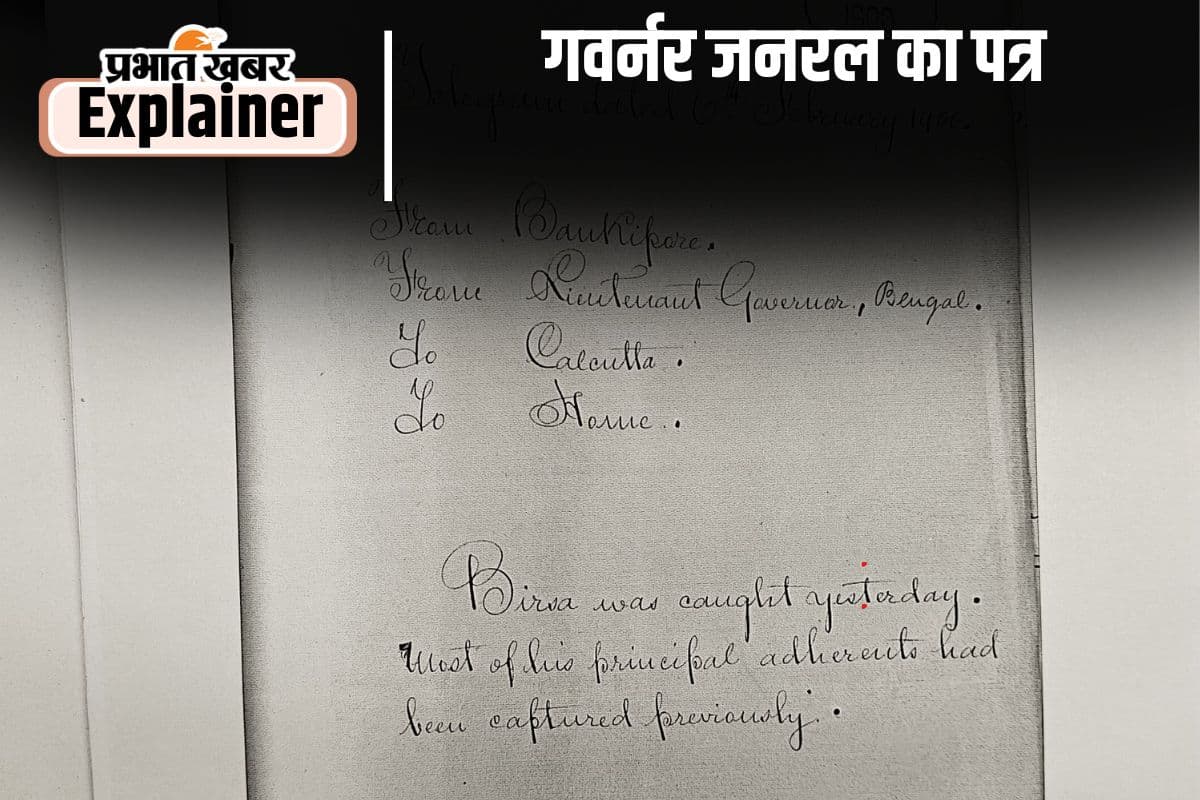 प्रभात खबर
Explainer
गवर्नर जनरल का पत्र
Telegram dated 6th February 1900.
From Bankipore.
From Lieutenant Governor, Bengal.
To Calcutta.
To Home.
Birsa was caught yesterday.
Most of his principal adherents had
been captured previously.